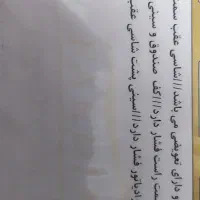 و دارای تعویضی می باشد///شاسی عقب سمت
مت راست فشار دارد///کف صندوق و سینی
رادیاتور فشار دارد///سینی پشت شاسی عقب